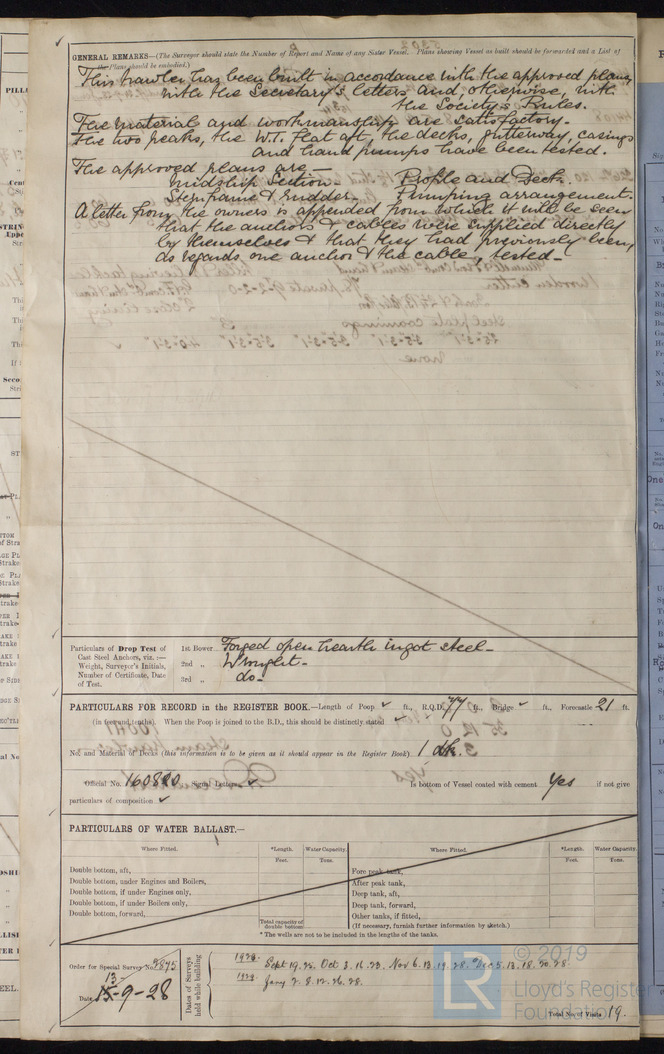 GENERAL REMARKS—(The Surveyor should state the Number of Report and Name of any Sister Vessel. Plans showing Vessel as built should be forwarded and a List of
the Plans should be embodied.)
This trawler has been built in accordance with the approved plans,
with the Secretary's letters and, otherwise, with
the Society's Rules.
The material and workmanship are satisfactory.
The two peaks, the W.T. flat aft, the decks, gutterway, casings
and hand pumps have been tested.
The approved plans are—
Midship Section— Profile and Decks.
Sternframe & rudder— Pumping arrangement.
A letter from the owners is appended from which it will be seen
that the anchors & cables were supplied directly
by themselves & that they had previously been,
as regards one anchor & the cable, tested—
Particulars of Drop Test of
Cast Steel Anchors, viz.:—
Weight, Surveyor's Initials,
Number of Certificate, Date
of Test.
1st Bower Forged open hearth ingot steel—
2nd „ Wrought—
3rd „ do—
PARTICULARS FOR RECORD in the REGISTER BOOK.—Length of Poop ✓ ft., R.Q.D. 77 ft., Bridge ✓ ft., Forecastle 21 ft.
(in feet and tenths). When the Poop is joined to the B.D., this should be distinctly stated ✓
No. and Material of Decks (this information is to be given as it should appear in the Register Book) 1 dk.
Official No. Signal Letters ✓ Is bottom of Vessel coated with cement Yes if not give
particulars of composition ✓
PARTICULARS OF WATER BALLAST.—
Where Fitted. *Length. Water Capacity. Where Fitted. *Length. Water Capacity.
Feet. Tons. Feet. Tons.
Double bottom, aft, Fore peak tank,
Double bottom, under Engines and Boilers, After peak tank,
Double bottom, if under Engines only, Deep tank, aft,
Double bottom, if under Boilers only, Deep tank, forward,
Double bottom, forward, Other tanks, if fitted,
Total capacity of double bottom (If necessary, furnish further information by sketch.)
* The wells are not to be included in the lengths of the tanks.
Order for Special Survey No. 2875
Date 13-9-28
Dates of Surveys
held while building
1928. Sept 19. 25. Oct 3. 16. 23. Nov 6. 13. 19. 28. Dec 5. 13. 18. 20. 28.
1929. Jany 2. 8. 12. 26. 28.
Total No. of Visits 19.
© 2019
LR
Lloyd's Register
Foundation